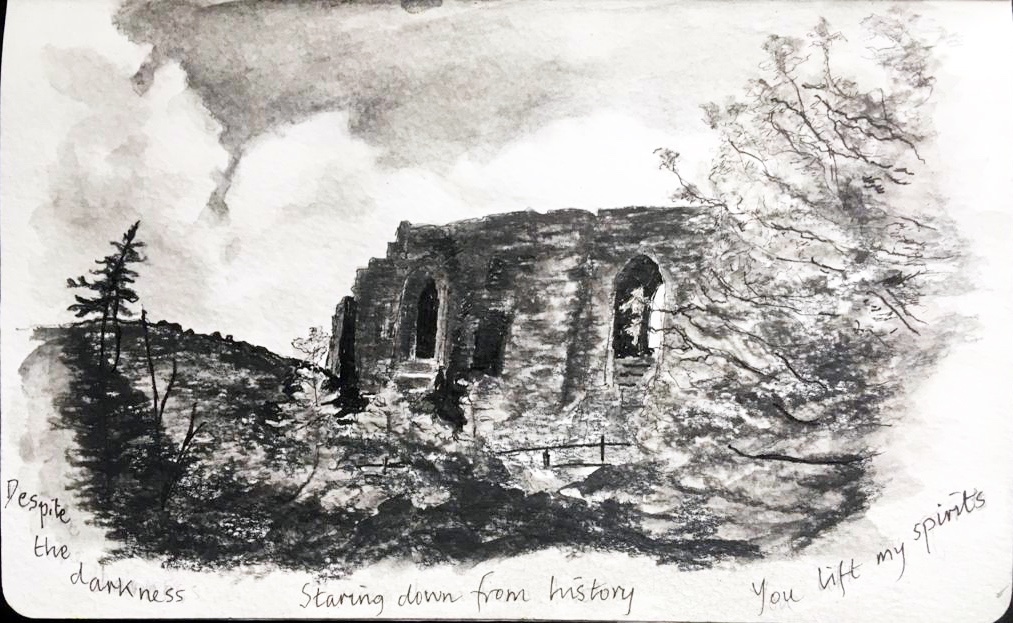 Despite
the
darkness
Staring down from history
You lift my spirits